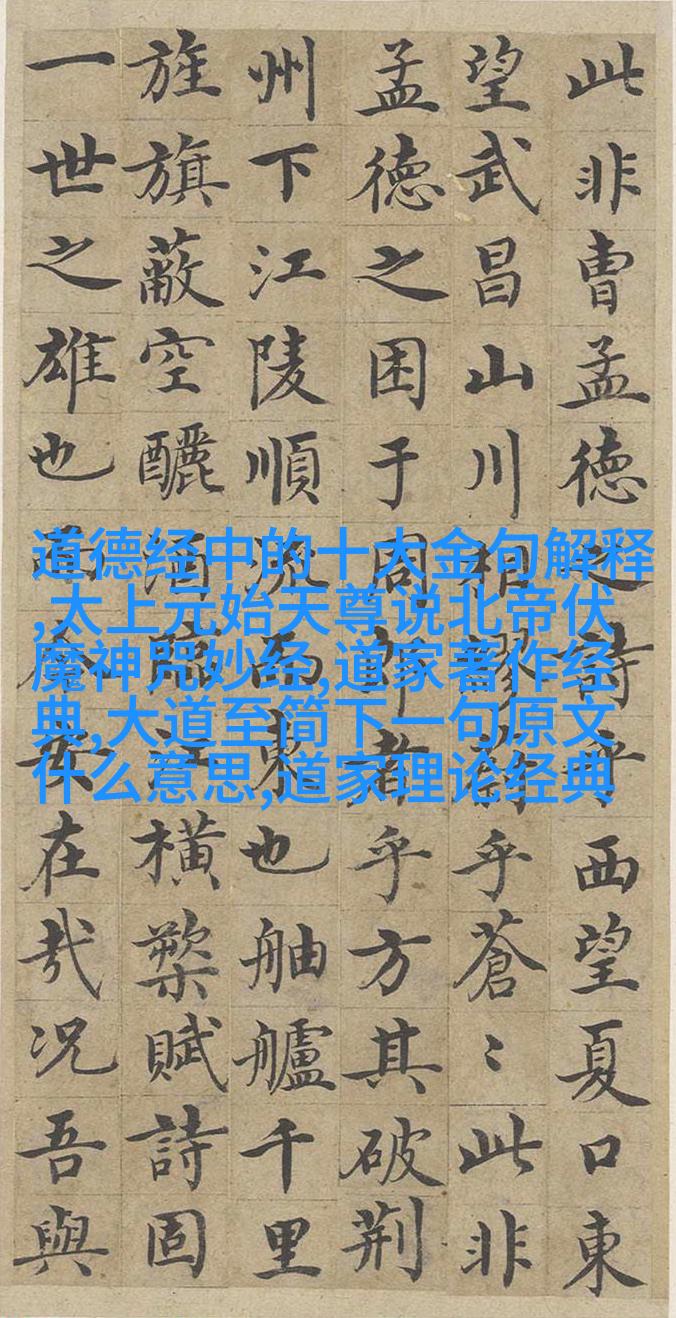 此非曹孟德之詩乎西望夏口東
望武昌山川相繆乎蒼〻此非
孟德之困于周郎者乎方其破荆
州下江陵順流而東也舳艫千里
旌旗蔽空釃酒臨江橫槊賦詩固
一世之雄也而今安在哉况吾與
道德经中的十大金句解释
,太上元始天尊说北帝伏
魔神咒妙经,道家著作经
典,大道至简下一句原文
什么意思,道家理论经典